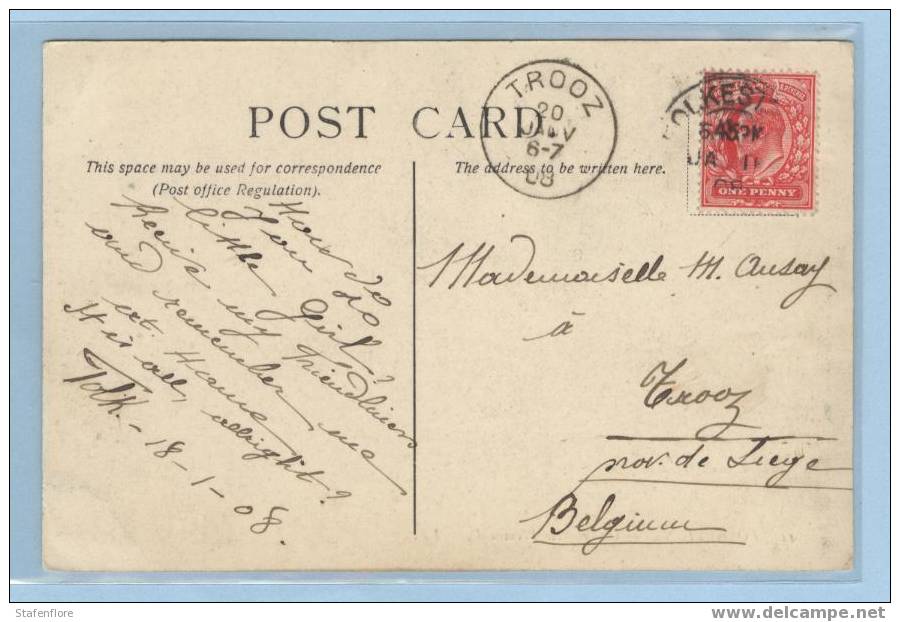 POST CARD
This space may be used for correspondence
(Post office Regulation).
The address to be written here.
TROOZ
20
JANV
6-7
08
FOLKEST
5.45PM
JA
ONE PENNY
How do
You do
little Girl?
Receive my Friendliness
and remember me
at Home
It is all, allright?
Folk.- 18-1-08.
Mademoiselle M. Ansay
à
Trooz
prov. de Liége
Belgium
Stafenflore
www.delcampe.net